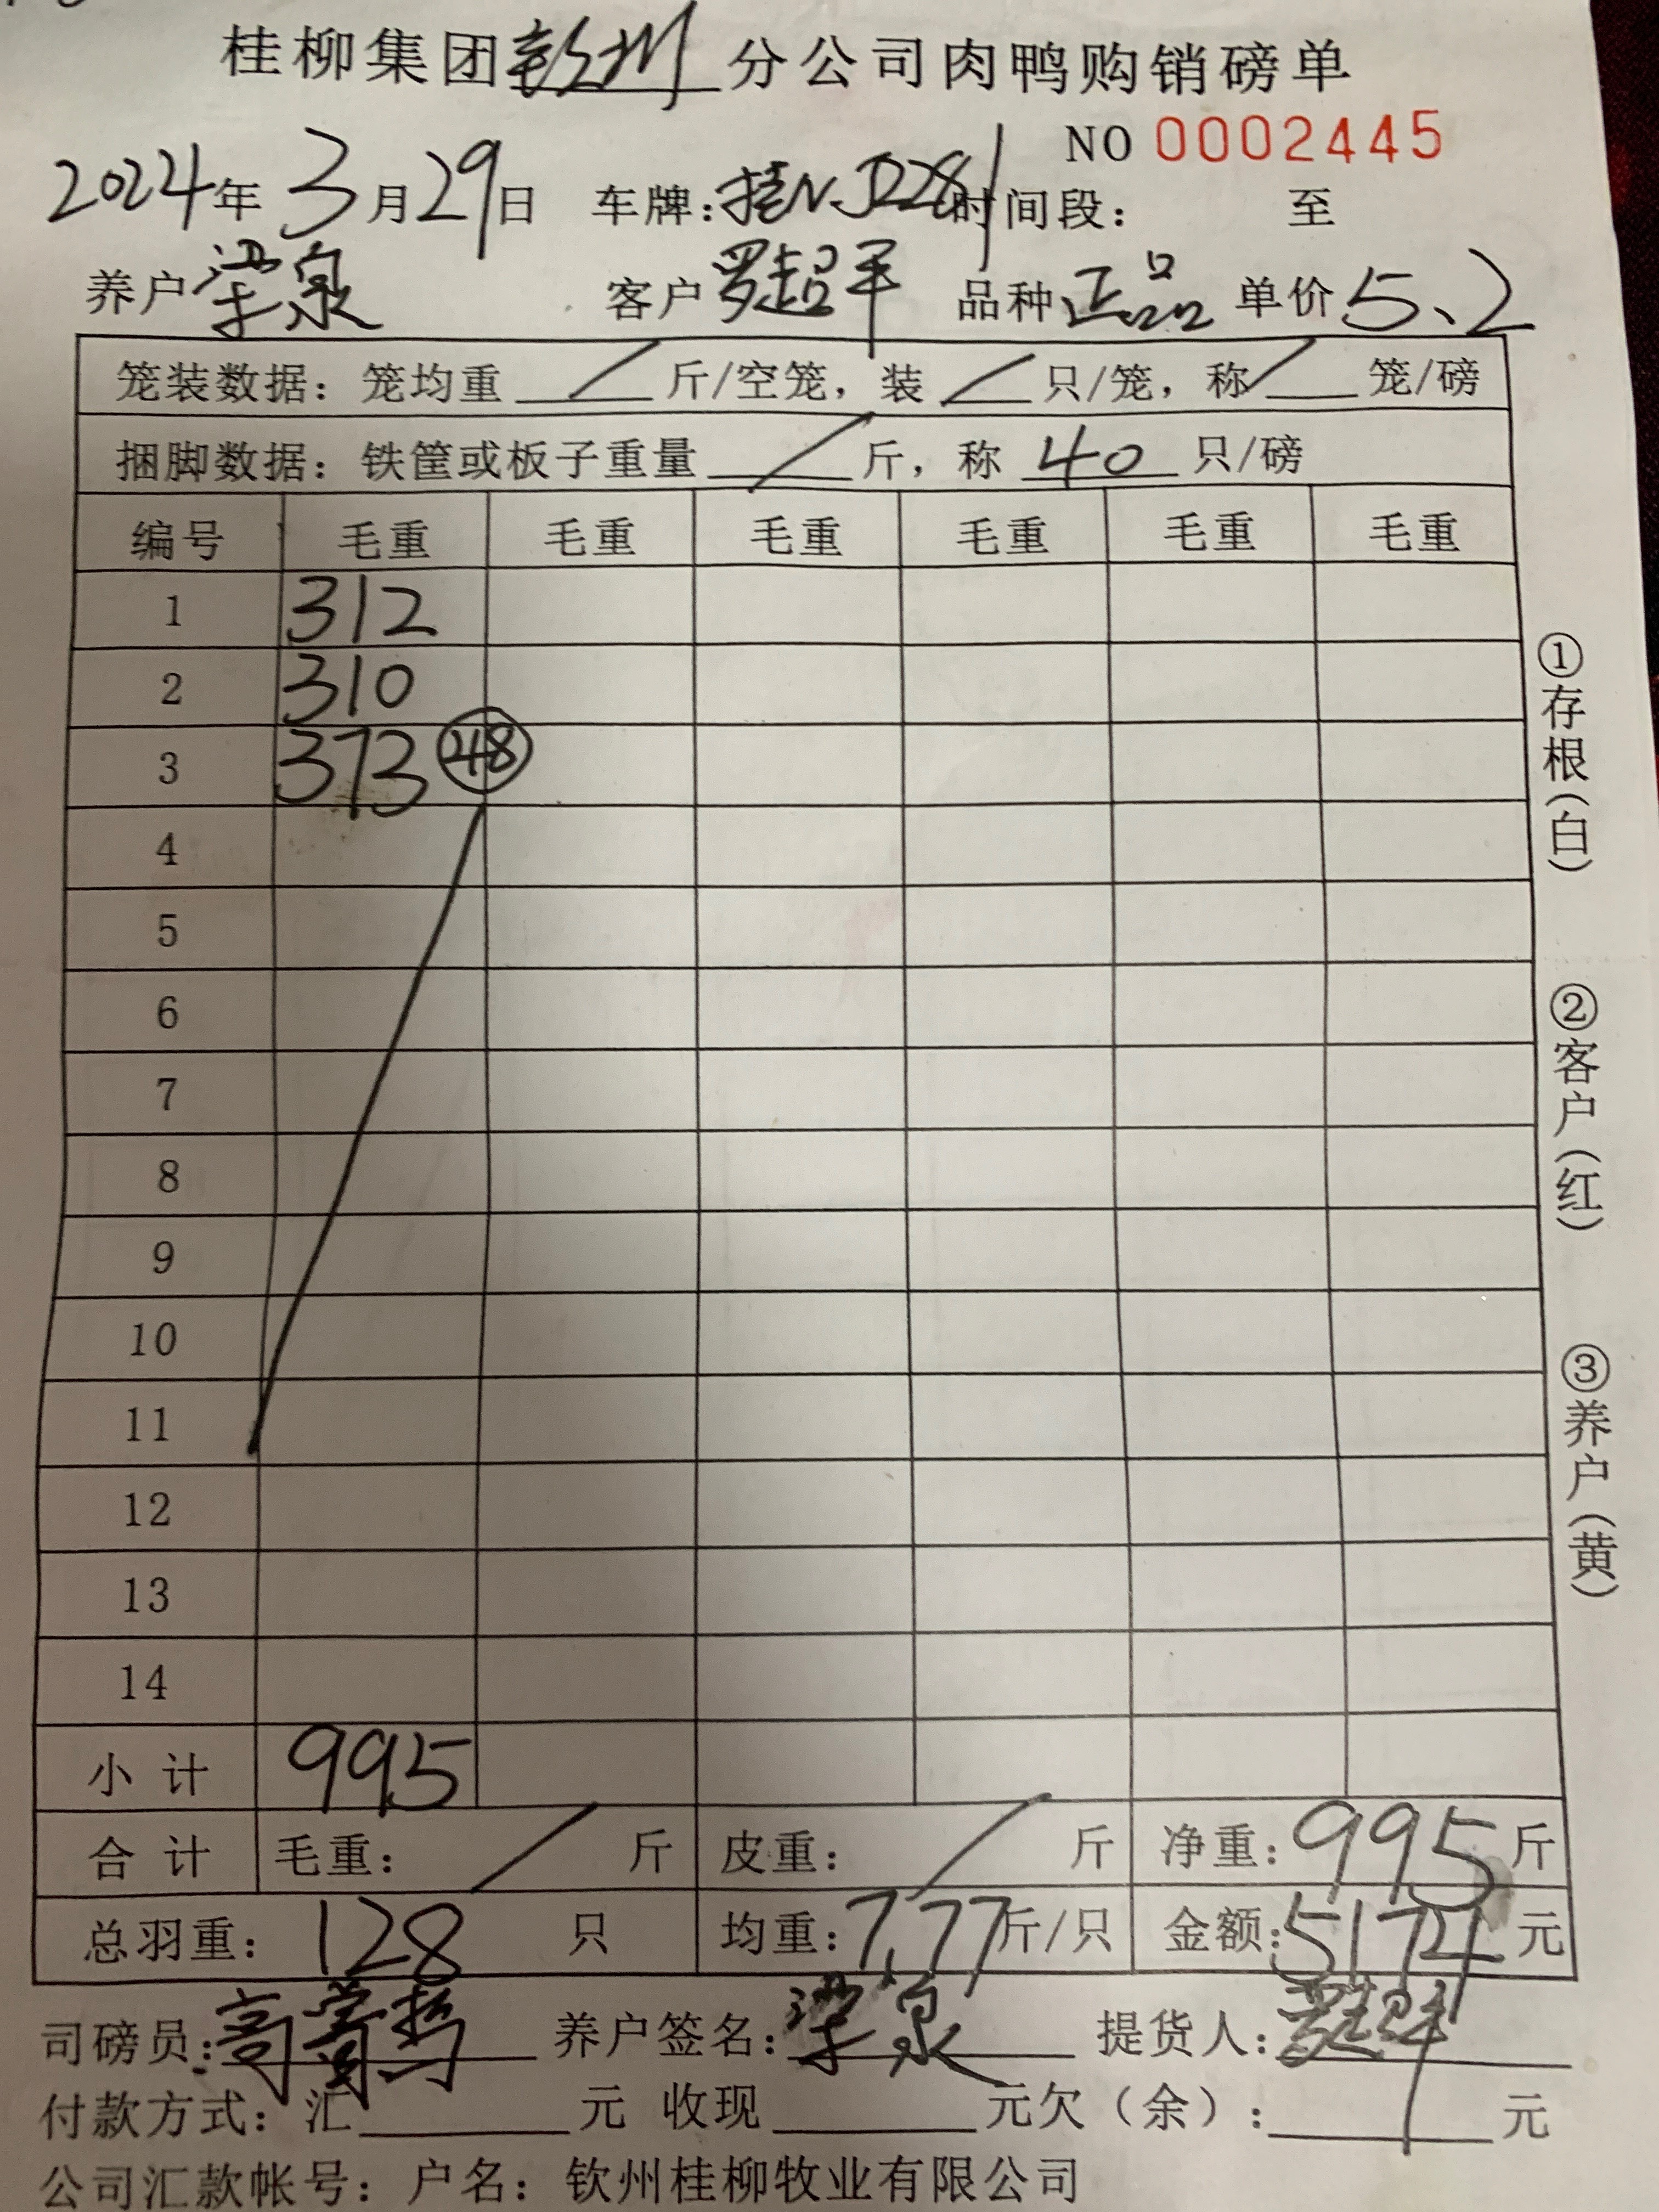 桂柳集团钦州分公司肉鸭购销磅单
NO 0002445
2024年3月29日 车牌:桂N.J2281 时间段: 至
养户 梁泉 客户 罗超平 品种 正品 单价 5、2
笼装数据: 笼均重 / 斤/空笼, 装 / 只/笼, 称 / 笼/磅
捆脚数据: 铁筐或板子重量 / 斤, 称 40 只/磅
编号 毛重 毛重 毛重 毛重 毛重 毛重
1 312
2 310
3 373 48
4
5
6
7
8
9
10
11
12
13
14
小计 995
合计 毛重: / 斤 皮重: / 斤 净重: 995 斤
总羽重: 128 只 均重: 7.77 斤/只 金额: 5174 元
司磅员: 养户签名: 梁泉 提货人: 罗超平
付款方式: 汇 元 收现 元欠(余): 元
公司汇款帐号: 户名: 钦州桂柳牧业有限公司
①存根(白)
②客户(红)
③养户(黄)